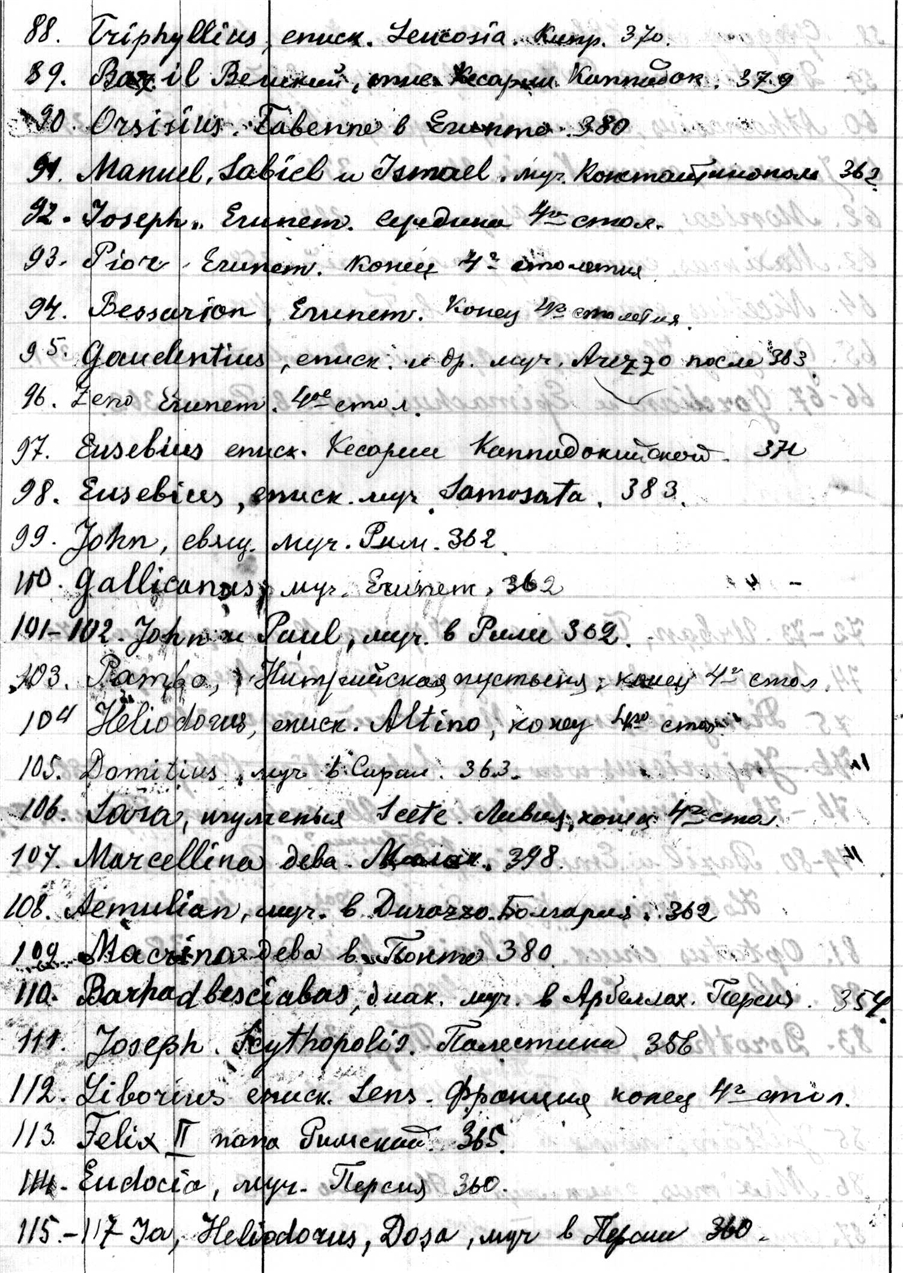 88. Triphyllius, еписк. Leucosia. Кипр. 370.
89. Bazil Великий, епис. Кесарии Каппадок. 379
90 Orsisius. Табенна в Египте 380
91. Manuel, Sabiel и Ismael, муч. Константинополь 362
92. Joseph. Египет. Середина 4го стол.
93. Pior. Египет. Конец 4го столетия
94. Bessarion, Египет. Конец 4го столетия.
95. Gaudentius, еписк. и др. муч. Arezzo после 363.
96. Zeno Египет. 4ое стол.
97. Eusebius еписк. Кесарии Каппадокийской. 371
98. Eusebius, еписк. муч. Samosata. 383.
99. John, свящ. муч. Рим. 362.
100. Gallicanus, муч. Египет, 362
101-102. John и Paul, муч. в Риме 362.
103. Pambo, Нитрийская пустыня, конец 4го стол.
104 Heliodorus, еписк. Altino, конец 4го стол
105. Domitius, муч в Сирии. 363.
106. Sara, игуменья Scete. Ливия, конец 4го стол.
107. Marcellina дева. 398
108. Aemulian, муч. в Durazzo. Болгария. 362
109 Macrina дева в Понте 380
110. Barhadbesciabas, диак. муч. в Арбеллах. Персия. 354.
111. Joseph. Scythopolis. Палестина 356
112. Liborius еписк. Sens. Франция конец 4го стол.
113. Felix II папа Римский. 365.
114. Eudocia, муч. Персия 360.
115.-117 Ia, Heliodorus, Dosa, муч в Персии 360.